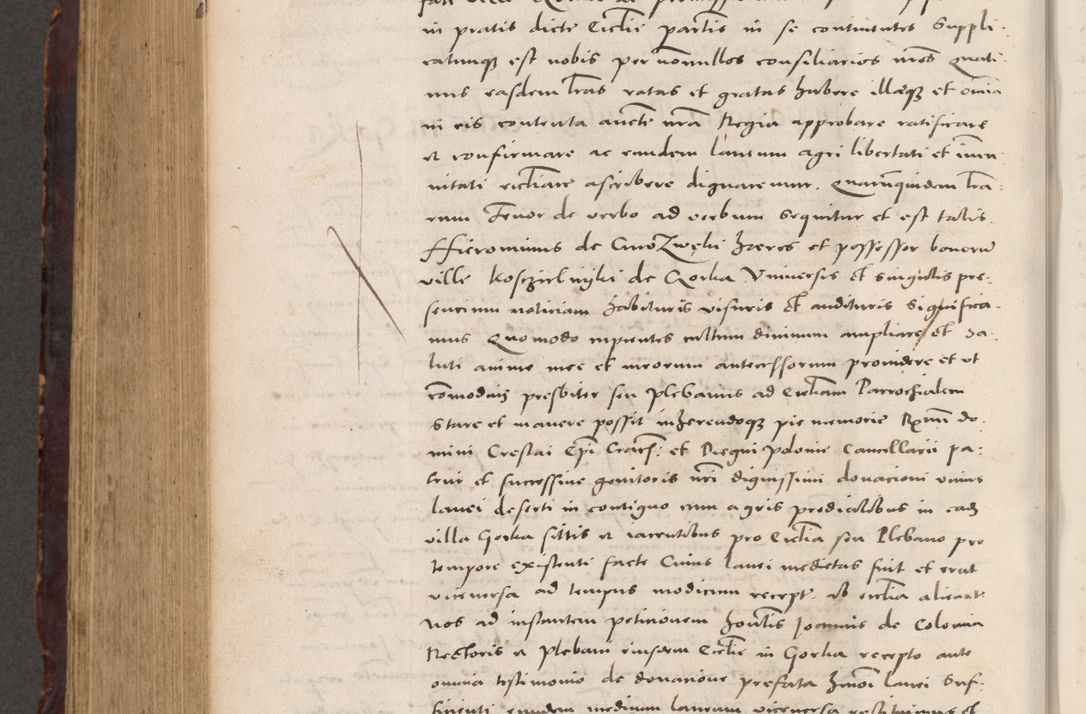 in pratis dicte Ecclie partis in se continentes Suppli-
catumque est nobis per nonnullos consiliarios nros Quati
nus easdem lras ratas et gratas habere illasque et omnia
in eis contenta aucte nra Regia approbare ratificare
et confirmare ac eundem laneum agri libertati et imm
nitati eccliare ascribere dignaremur. Quarumquidem lra-
rum Tenor de verbo ad verbum sequitur et est talis.
Hieronimus de heres et possessor bonorum
ville de Gorka Universis et singulis pre-
sencium noticiam habituris visuris et audituris Significa-
mus Quomodo cupientes cultum divinum ampliare et sa-
luti anime mee et meorum antecessorum providere et ut
comodius presbiter seu plebanus ad Eccliam Parrochialem
stare et manere possit inherendoque pie memorie Rmi do-
mini Epi Cracs. et Regni polonie Cancellarii pa-
trui et successive genitoris nri dignissimi donacioni unius
lanei deserti in contiguo cum agris predialibus in eadem
villa Gorka sittis et iacentibus pro Ecclia seu Plebano pro
tempore existenti facte Cuius lanei medietas fuit et erat
viceversa ad tempus modicum recept. ab ecclia alienat
nos ad instantem peticionem honlis Joannis de Colonia
Rectoris et plebani eiusdem Ecclie in Gorka recepto ante
omnia testimonio de donacione prefata lanei Suf-
ficienti eundem medium laneum viceversa restituimus et